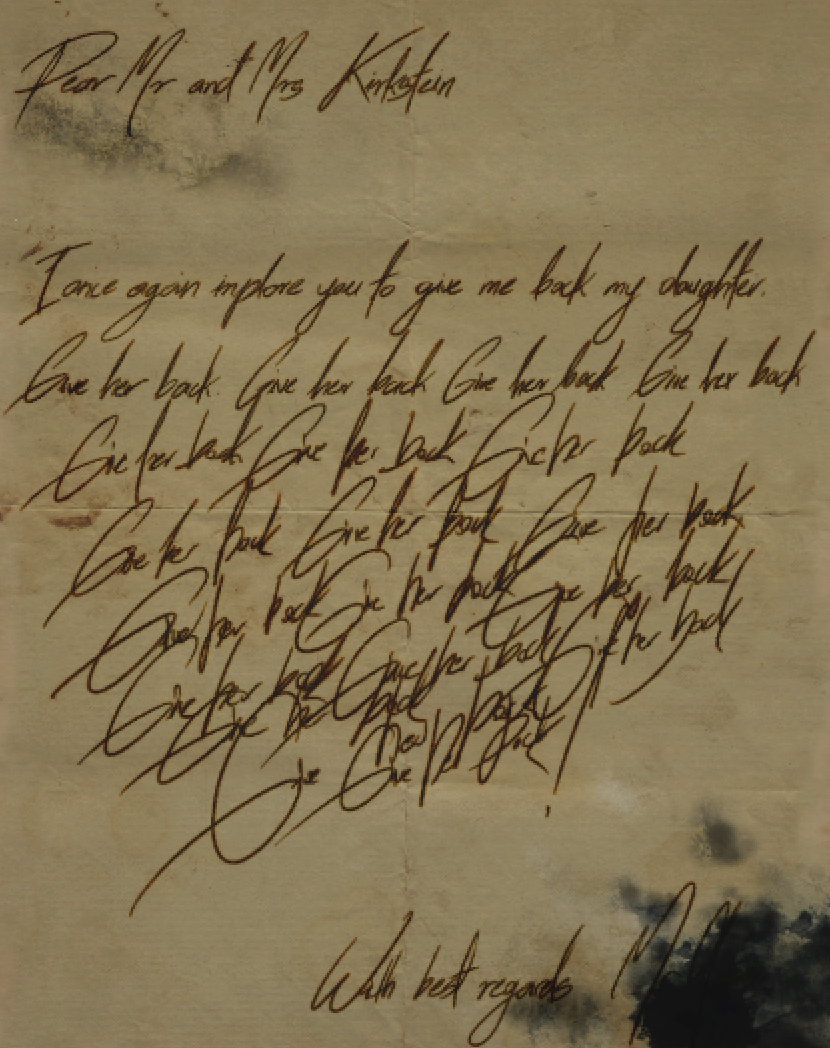 Dear Mr and Mrs Kirkstein
I once again implore you to give me back my daughter.
Give her back. Give her back Give her back Give her back
Give her back Give her back Give her back
Give her back Give her back Give her back
Give her back Give her back Give her back
Give her back Give her back Give her back
Give her back back
Give Give her back
With best regards M